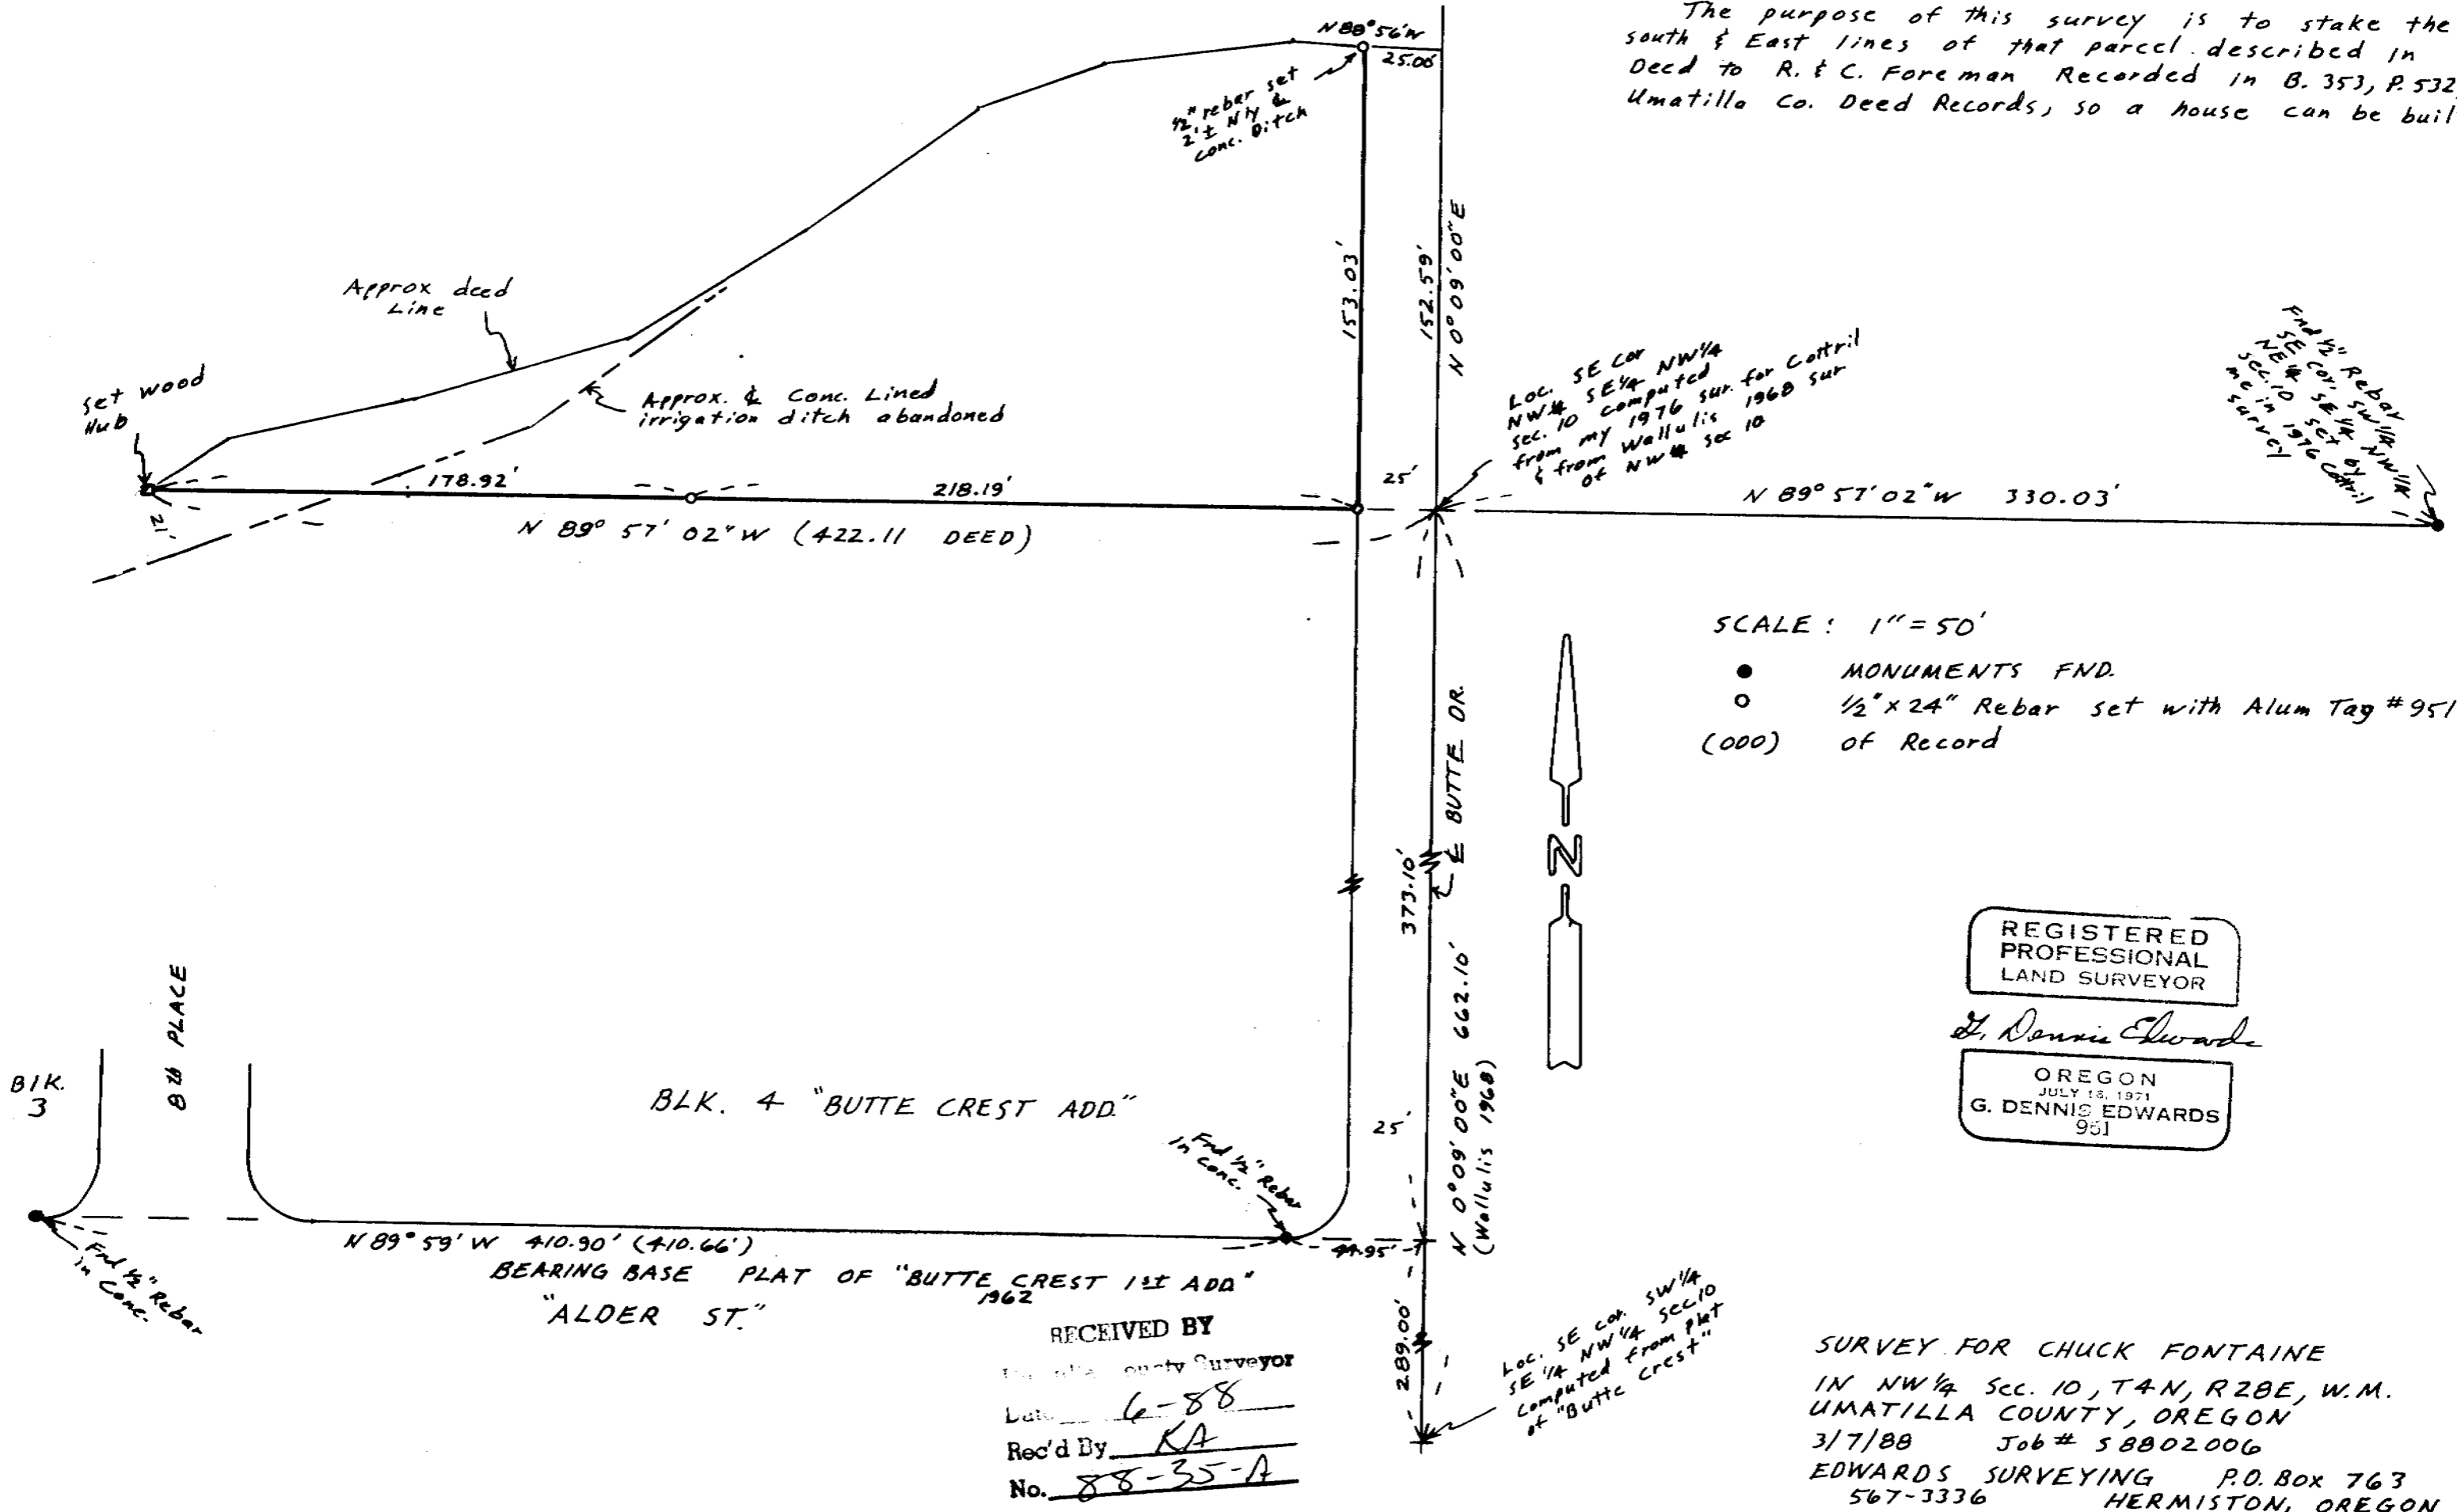 The purpose of this survey is to stake the
south & East lines of that parcel described in
Deed to R. & C. Foreman Recorded in B. 353, P. 532,
Umatilla Co. Deed Records, so a house can be buil
N 88° 56' W
25.00'
1/2" rebar set
2'± N'ly ℄
conc. Ditch
153.03'
152.59'
N 0° 09' 00" E
Approx deed
Line
Set wood
Hub
Approx. ℄ Conc. Lined
irrigation ditch abandoned
Loc. SE Cor
NW¼ SE¼ NW¼
sec. 10 computed
from my 1976 sur. for Cottril
& from Wallulis 1968 sur
of NW¼ sec 10
Fnd ½" Rebar
SE cor. SW¼
NE¼ SE¼ NW¼
sec. 10 set by
me in 1976 Cottril
survey
178.92'
218.19'
25'
21'
N 89° 57' 02" W (422.11 DEED)
N 89° 57' 02" W 330.03'
SCALE: 1" = 50'
MONUMENTS FND.
½" x 24" Rebar set with Alum Tag #951
(000) of Record
℄ BUTTE DR.
373.10'
N
N 0° 09' 00" E 662.10'
(Wallulis 1968)
REGISTERED
PROFESSIONAL
LAND SURVEYOR
G. Dennis Edwards
OREGON
JULY 16, 1971
G. DENNIS EDWARDS
951
8th PLACE
Blk.
3
BLK. 4 "BUTTE CREST ADD."
25'
Fnd ½" Rebar
in conc.
Fnd ½" Rebar
in Conc.
N 89° 59' W 410.90' (410.66')
44.95'
BEARING BASE PLAT OF "BUTTE CREST 1st ADD"
1962
"ALDER ST."
289.00'
Loc. SE cor. SW¼
SE¼ NW¼ sec 10
computed from plat
of "Butte Crest"
RECEIVED BY
County Surveyor
Date 6-88
Rec'd By KA
No. 88-35-A
SURVEY FOR CHUCK FONTAINE
IN NW¼ Sec. 10, T4N, R28E, W.M.
UMATILLA COUNTY, OREGON
3/7/88 Job # S8802006
EDWARDS SURVEYING P.O. Box 763
567-3336 HERMISTON, OREGON